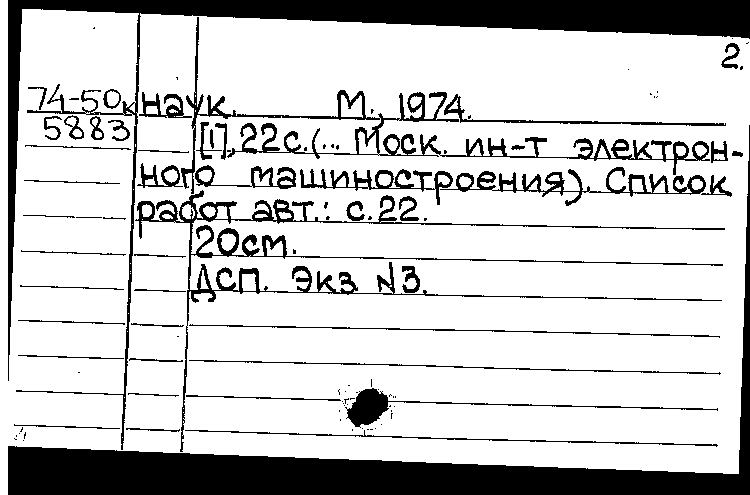 2.
74-50к наук. М., 1974.
5883 [1], 22с. (... Моск. ин-т электрон-
ного машиностроения). Список
работ авт.: с. 22.
20см.
ДСП. Экз. №3.